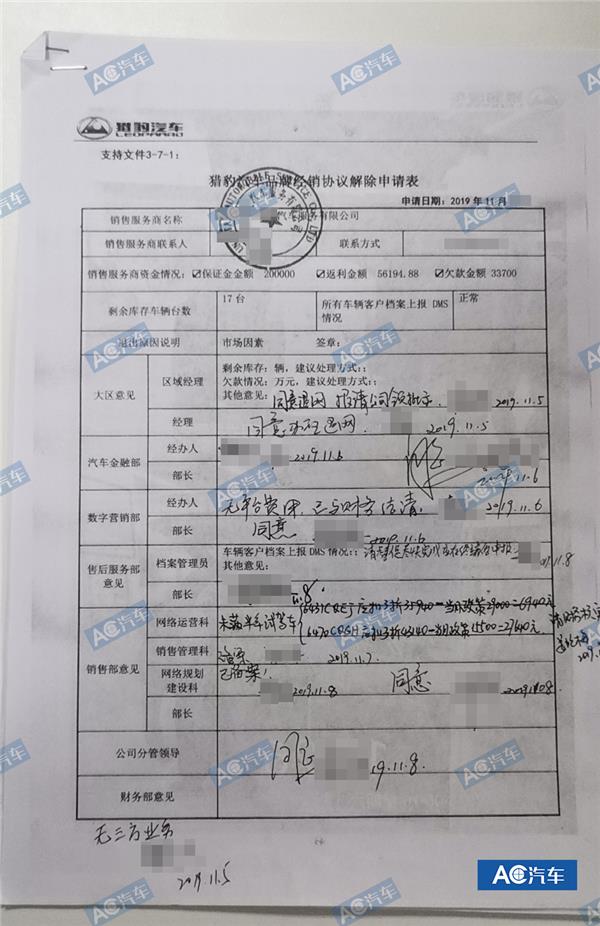 猎豹汽车
LEOPAARD
支持文件3-7-1:
猎豹汽车品牌经销协议解除申请表
申请日期:2019 年 11 月
销售服务商名称 汽车服务有限公司
销售服务商联系人 联系方式
销售服务商资金情况: ☑保证金金额 200000 ☑返利金额 56194.88 ☑欠款金额 33700
剩余库存车辆台数 17 台 所有车辆客户档案上报 DMS 情况 正常
退出原因说明 市场因素 签章:
大区意见 区域经理 剩余库存: 辆, 建议处理方式::
欠款情况: 万元, 建议处理方式::
其他意见: 同意退网 报请公司领批示 2019.11.5
经理 同意办理退网 2019.11.5
汽车金融部 经办人 2019.11.6
部长 11.6
数字营销部 经办人 无平台费用,已与财务结清 2019.11.6
部长 同意 2019.11.6
售后服务部意见 档案管理员 车辆客户档案上报 DMS 情况::
其他意见: 11.8
部长 11.8
销售部意见 网络运营科 未满半年试驾车
6431 应扣3折35940-当月政策29000=6940元
6470 应扣3折43140-当月政策15500=27640元
销售管理科 2019.11.7
网络规划建设科 已备案 2019.11.8 同意
部长
公司分管领导 同意 19.11.8.
财务部意见
无三方业务
2019.11.5
AC汽车